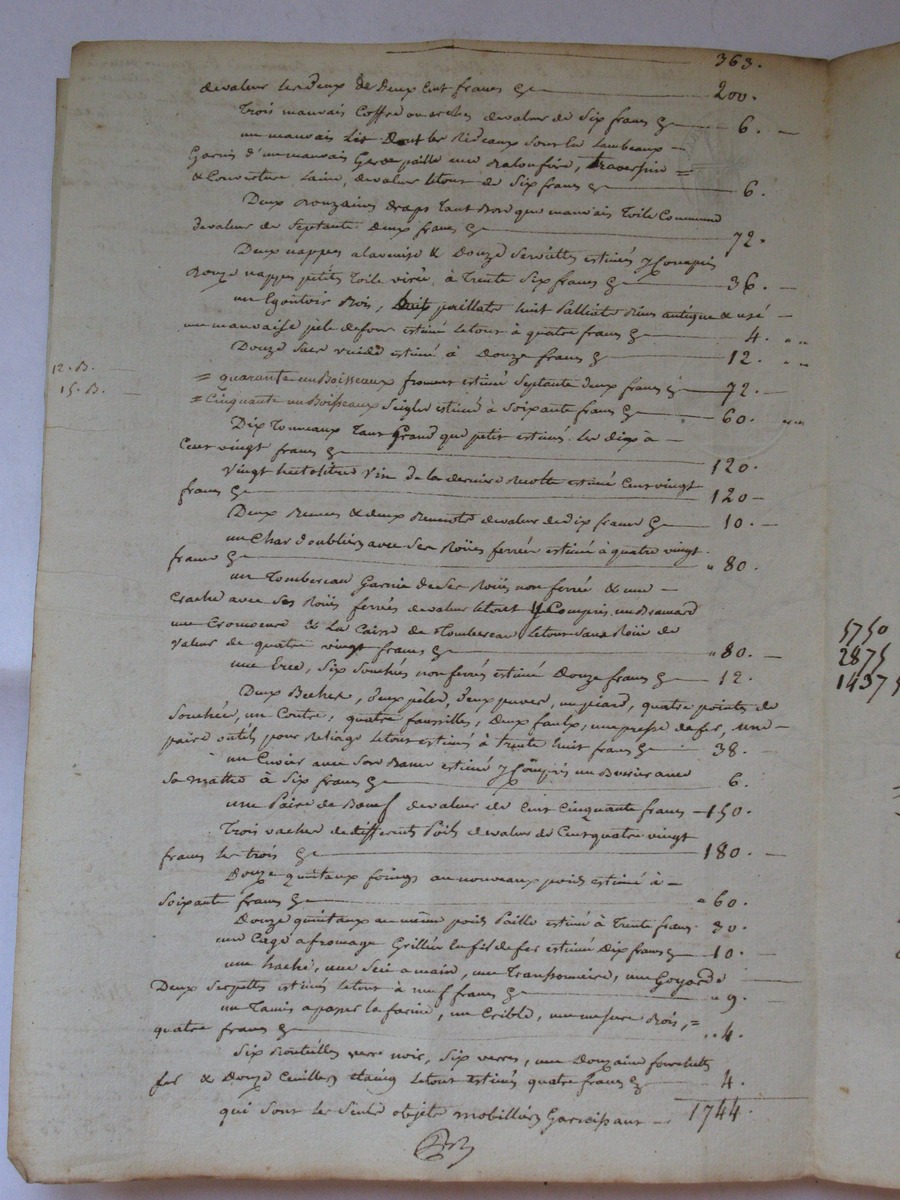 363.
de valeur les deux de Deux Cent francs 200.
Trois mauvais Coffre ou arches de valeur de Six francs 6.
un mauvais Lit Dont les Rideaux sont en Lambeaux
Garnis d'un mauvais Garde paille une Baloufière, traversin =
& Couverture Laine, de valeur le tout de Six francs 6.
Deux Douzaines draps Tant Bon que mauvais Toile Commune
de valeur de Septante Deux francs 72.
Deux nappes a la venise & Douze Serviettes estimés y Compris
Douze nappes petits Toile à Trente Six francs 36.
un Egoutoir Bois, antique & usé
une mauvaise pele de four estimé le tout à quatre francs 4. " "
Douze Sacs vuide estimé à Douze francs 12. " "
12. B. = quarante un Boisseaux froment estimé Septante deux francs 72.
15. B. = Cinquante un Boisseaux Seigle estimé à Soixante francs 60. " "
Dix Tonneaux Tant Grand que petit estimés les dix à
Cent vingt francs 120.
Vingt hectolitres Vin de la derniere Recolte estimé Cent vingt
francs 120
Deux & deux de valeur de dix francs 10.
un Char avec Ses Roües ferrée estimé à quatre vingt
francs " 80.
un Tombereau Garnie de Ses Roües non ferré & une
avec Ses Roües ferrés de valeur le tout y Compris un
une & La Caisse de Tombereau le tout sans Roüe de
valeur de quatre vingt francs " 80.
une Six non ferrés estimé Douze francs 12.
Deux Beches, deux pèles, deux un piard, quatre pointes de
un Coutre, quatre faussilles, Deux faulx, une presse de fer, une
paire outils pour le tout estimés à trente huit francs 38.
un Cuvier avec Son Banc estimé y Compris un avec
Sa à Six francs 6.
une Paire de Bœuf de valeur de Cent Cinquante francs 150.
Trois vaches de différents Poils de valeur de Cent quatre vingt
francs les trois 180.
Douze quintaux foings au nouveaux poids estimé à
Soixante francs " 60.
Douze quintaux au même poids Paille estimé à Trente francs 30.
une Cage a fromage Grillée en fil de fer estimé Dix francs 10.
une hache, une Scie a main, une un Goyard &
Deux Serpettes estimés le tout à neuf francs " 9.
un Tamis a passer la farine, un Crible, une mesure Bois, =
quatre francs " 4.
Six Bouteilles verre noir, Six verres, une Douzaine fourchette
fer & Douze Cuillers étaing le tout estimés quatre francs 4.
qui sont les Seuls objets mobilliers Garnissant 1744.
5750
2875
1437